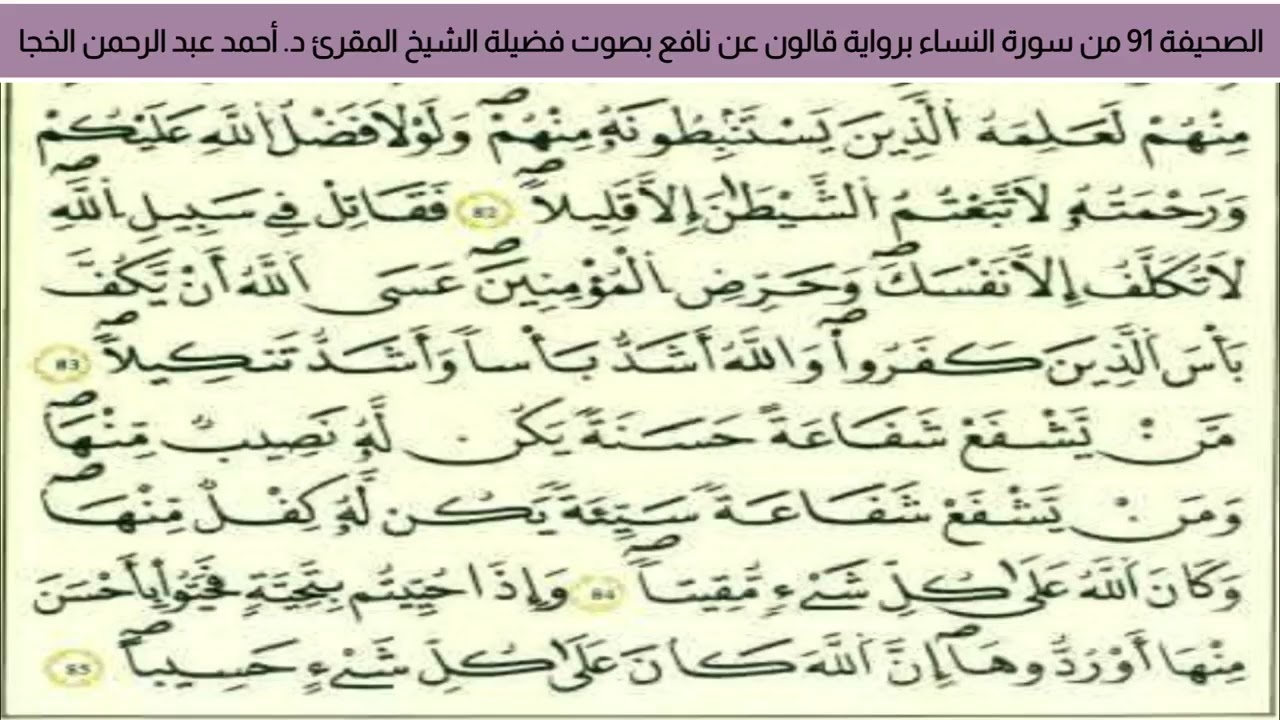 الصحيفة 91 من سورة النساء برواية قالون عن نافع بصوت فضيلة الشيخ المقرئ د. أحمد عبد الرحمن الخجا
مِنْهُمْ لَعَلِمَهُ اُ۬لذِينَ يَسْتَنۢبِطُونَهُۥ مِنْهُمْۖ وَلَوْلَا فَضْلُ اُ۬للَّهِ عَلَيْكُمْ
وَرَحْمَتُهُۥ لَاتَّبَعْتُمُ اُ۬لشَّيْطَٰنَ إِلَّا قَلِيلاًۖ 82 فَقَاتِلْ فِے سَبِيلِ اِ۬للَّهِۖ
لَا تُكَلَّفُ إِلَّا نَفْسَكَۖ وَحَرِّضِ اِ۬لْمُؤْمِنِينَۖ عَسَى اَ۬للَّهُ أَنْ يَّكُفَّ
بَأْسَ اَ۬لذِينَ كَفَرُواْۖ وَاللَّهُ أَشَدُّ بَأْساً وَأَشَدُّ تَنكِيلاًۖ 83
مَّنْ يَّشْفَعْ شَفَاعَةً حَسَنَةً يَكُن لَّهُۥ نَصِيبٌ مِّنْهَاۖ
وَمَنْ يَّشْفَعْ شَفَاعَةً سَيِّئَةً يَكُن لَّهُۥ كِفْلٌ مِّنْهَاۖ
وَكَانَ اَ۬للَّهُ عَلَىٰ كُلِّ شَےْءٍ مُّقِيتاًۖ 84 وَإِذَا حُيِّيتُم بِتَحِيَّةٍ فَحَيُّواْ بِأَحْسَنَ
مِنْهَا أَوْ رُدُّوهَاۖ إِنَّ اَ۬للَّهَ كَانَ عَلَىٰ كُلِّ شَےْءٍ حَسِيباًۖ 85